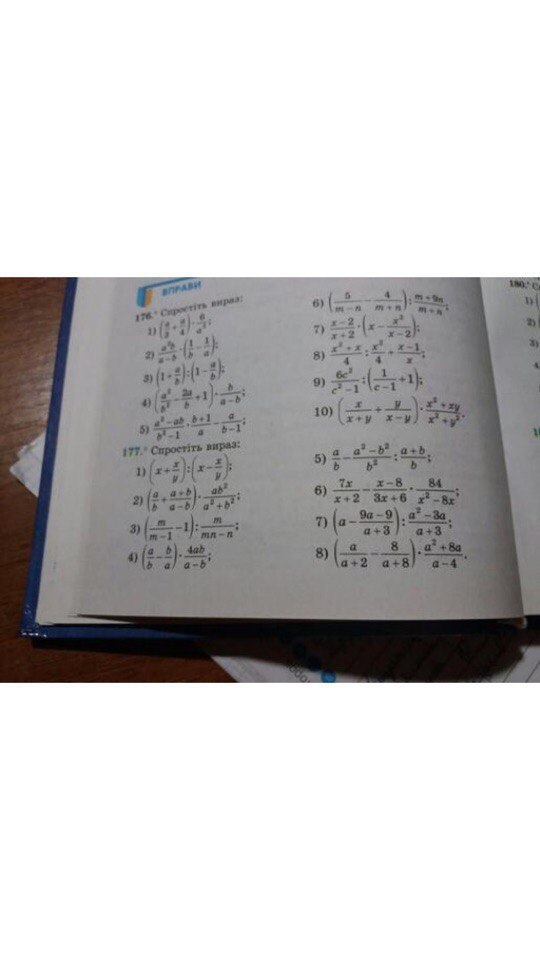 ВПРАВИ
176.° Спростіть вираз:
1) (a/3 + a/4) · 6/a²;
2) a²b/(a−b) · (1/b − 1/a);
3) (1 + a/b) : (1 − a/b);
4) (a²/b² − 2a/b + 1) · b/(a−b);
5) (a²−ab)/(b²−1) · (b+1)/a − a/(b−1);
6) (5/(m−n) − 4/(m+n)) : (m+9n)/(m+n);
7) (x−2)/(x+2) · (x − x²/(x−2));
8) (x²+x)/4 : x²/4 + (x−1)/x;
9) 6c²/(c²−1) : (1/(c−1) + 1);
10) (x/(x+y) + y/(x−y)) · (x²+xy)/(x²+y²).
177.° Спростіть вираз:
1) (x + x/y) : (x − x/y);
2) (a/b + (a+b)/(a−b)) · ab²/(a²+b²);
3) (m/(m−1) − 1) : m/(mn−n);
4) (a/b − b/a) · 4ab/(a−b);
5) a/b − (a²−b²)/b² : (a+b)/b;
6) 7x/(x+2) − (x−8)/(3x+6) · 84/(x²−8x);
7) (a − (9a−9)/(a+3)) : (a²−3a)/(a+3);
8) (a/(a+2) − 8/(a+8)) · (a²+8a)/(a−4).
180.°
1)
2)
3)